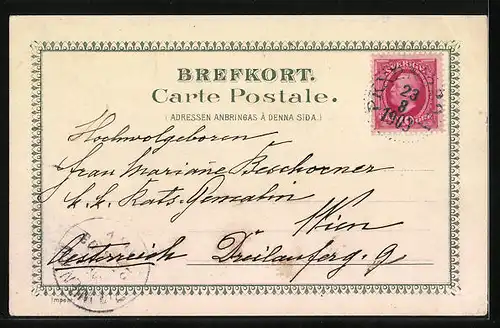 BREFKORT.
Carte Postale.
(ADRESSEN ANBRINGAS Å DENNA SIDA.)
23
8
1903
Hochwolgeboren
Frau Mariane Beschorner
k. k. Rats-Gemalin
Wien
Österreich Dreilauferg. 9